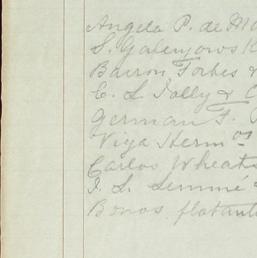 Angela P. de Mo
S. Galenjows K
Barron Forbes &
E. L. Jolly & C
German F.
Viya Hermos
Carlos Wheat
J. S. Lemmé
Bonos flotant